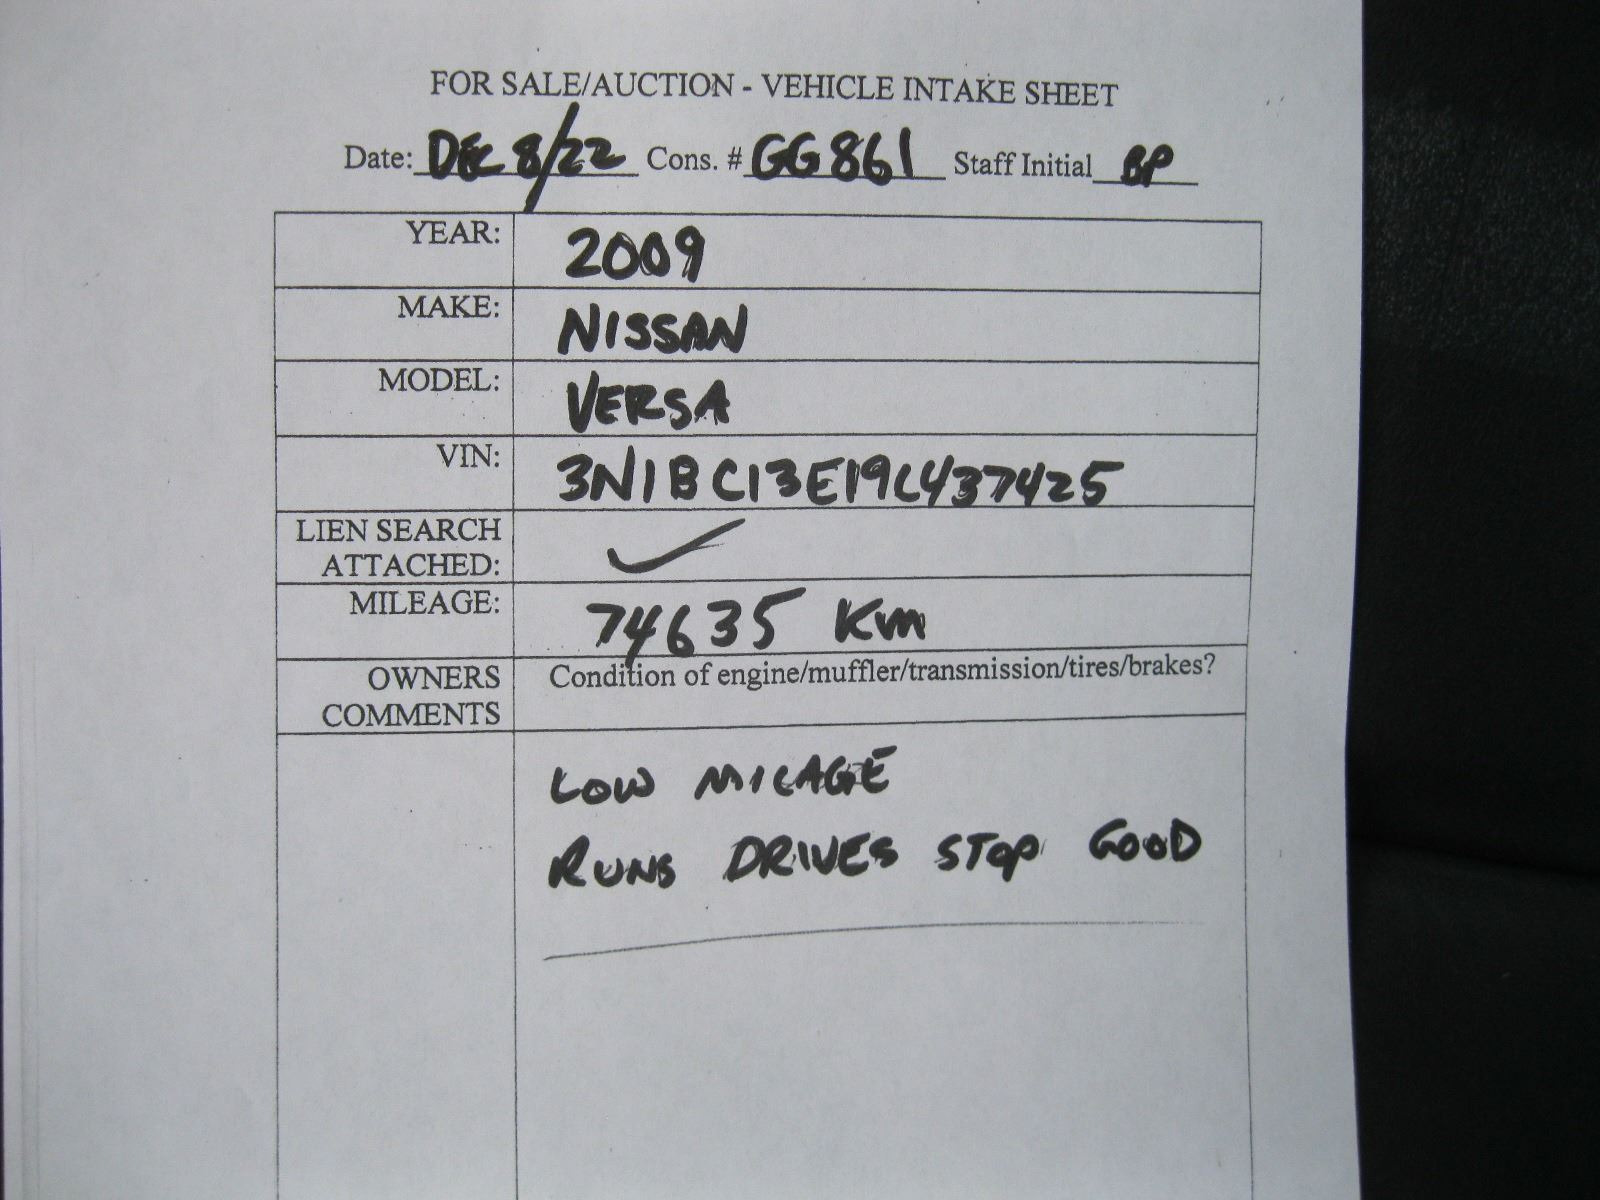 FOR SALE/AUCTION - VEHICLE INTAKE SHEET
Date: DEC 8/22 Cons. # GG861 Staff Initial BP
YEAR: 2009
MAKE: NISSAN
MODEL: VERSA
VIN: 3N1BC13E19L437425
LIEN SEARCH
ATTACHED: ✓
MILEAGE: 74635 Km
OWNERS Condition of engine/muffler/transmission/tires/brakes?
COMMENTS
LOW MILAGE
RUNS DRIVES STOP GOOD